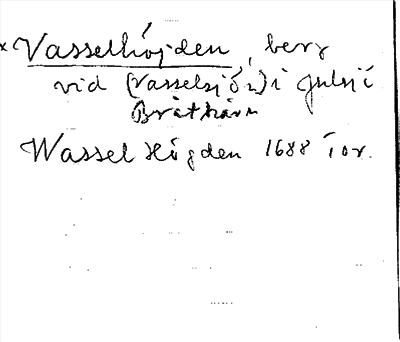 x Vasselhöjden, berg
vid (Vasselsjön) i Gulsjö
Bråtkärn
Wassel Högden 1688 Tor.